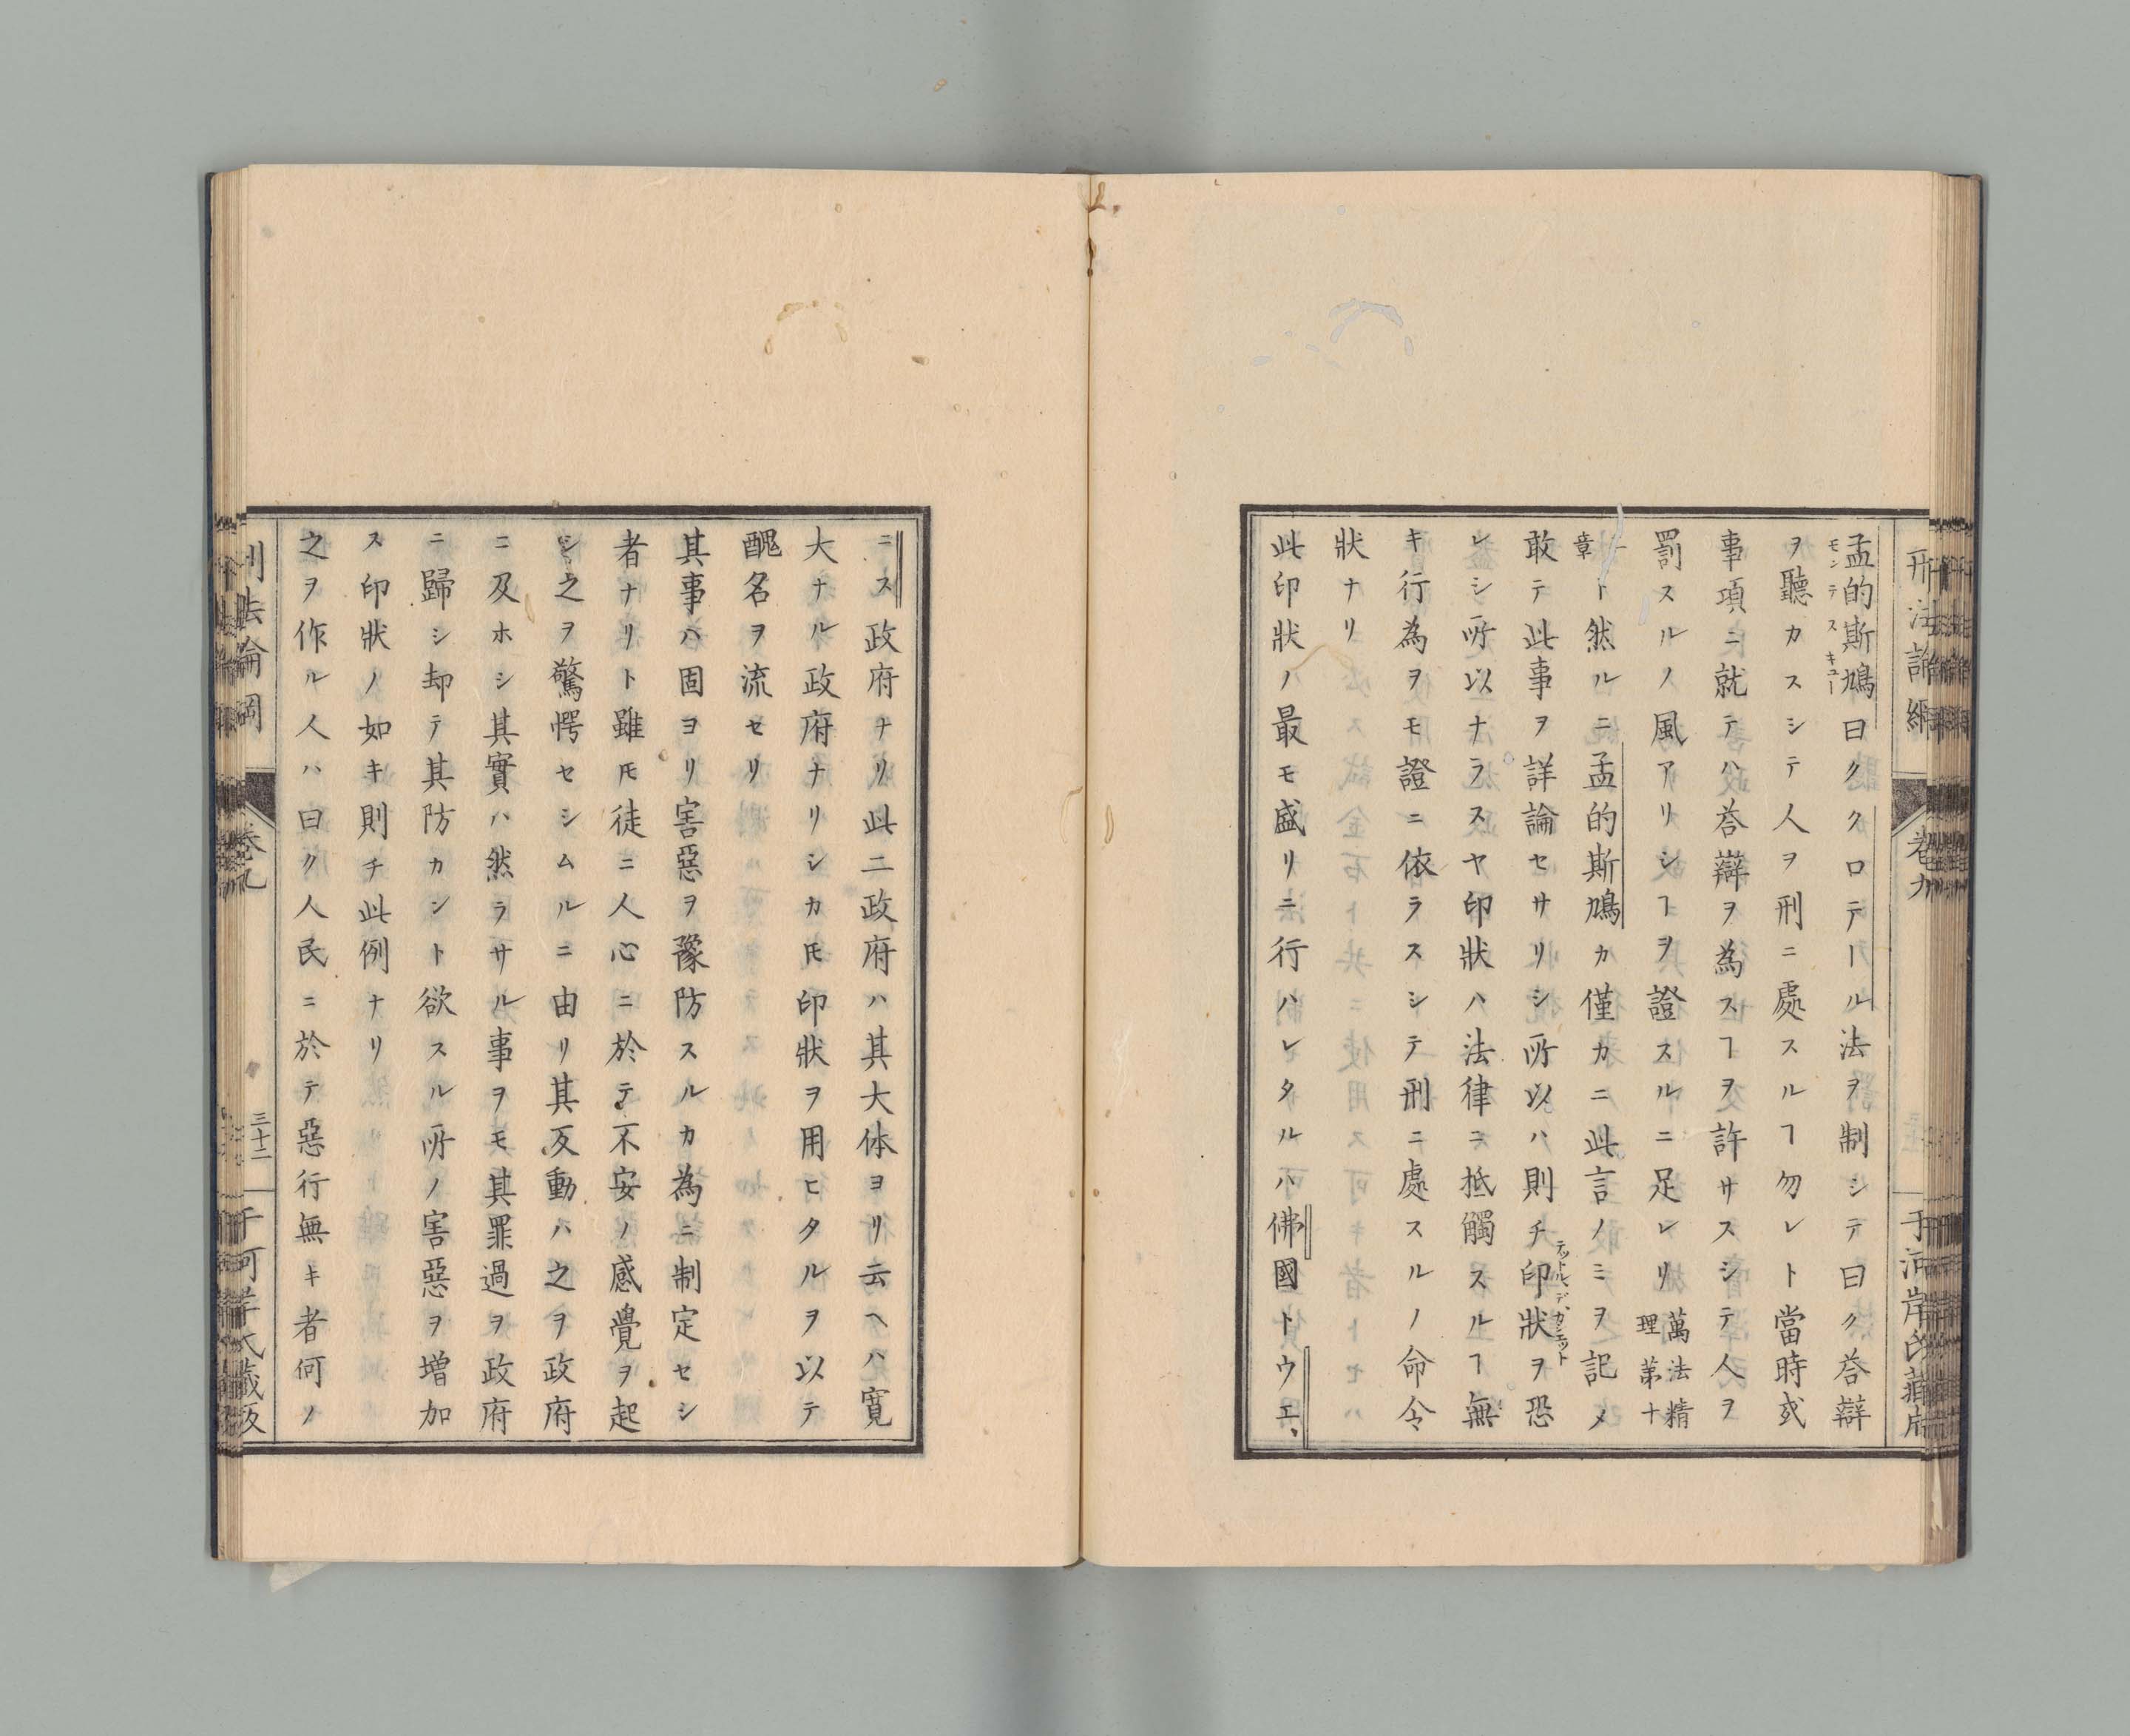 刑法論綱
卷九
孟的斯鳩曰ククロテール法ヲ制シテ曰ク荅辯
モンテスキュー
ヲ聽カスシテ人ヲ刑ニ處スルヿ勿レト當時或
事項ニ就テハ荅辯ヲ為スヿヲ許サスシテ人ヲ
罰スルノ風アリシヿヲ證スルニ足レリ萬法精理第十
一章ト然ルニ孟的斯鳩カ僅カニ此言ノミヲ記メ
敢テ此事ヲ詳論セサリシ所以ハ則チ印狀ヲ恐
レシ所以ナラスヤ印狀ハ法律ニ抵觸スルヿ無
キ行為ヲモ證ニ依ラスシテ刑ニ處スルノ命令
狀ナリ
此印狀ノ最モ盛リニ行ハレタルハ佛國トウエ、
ニス政府ナリ此二政府ハ其大体ヨリ云ヘハ寛
大ナル政府ナリシカ𪜈印狀ヲ用ヒタルヲ以テ
醜名ヲ流セリ
其事ハ固ヨリ害惡ヲ豫防スルカ為ニ制定セシ
者ナリト雖𪜈徒ニ人心ニ於テ不安ノ感覺ヲ起
シ之ヲ驚愕セシムルニ由リ其反動ハ之ヲ政府
ニ及ホシ其實ハ然ラサル事ヲモ其罪過ヲ政府
ニ歸シ却テ其防カント欲スル所ノ害惡ヲ增加
ス印狀ノ如キ則チ此例ナリ
之ヲ作ル人ハ曰ク人民ニ於テ惡行無キ者何ノ
卷九
三十二